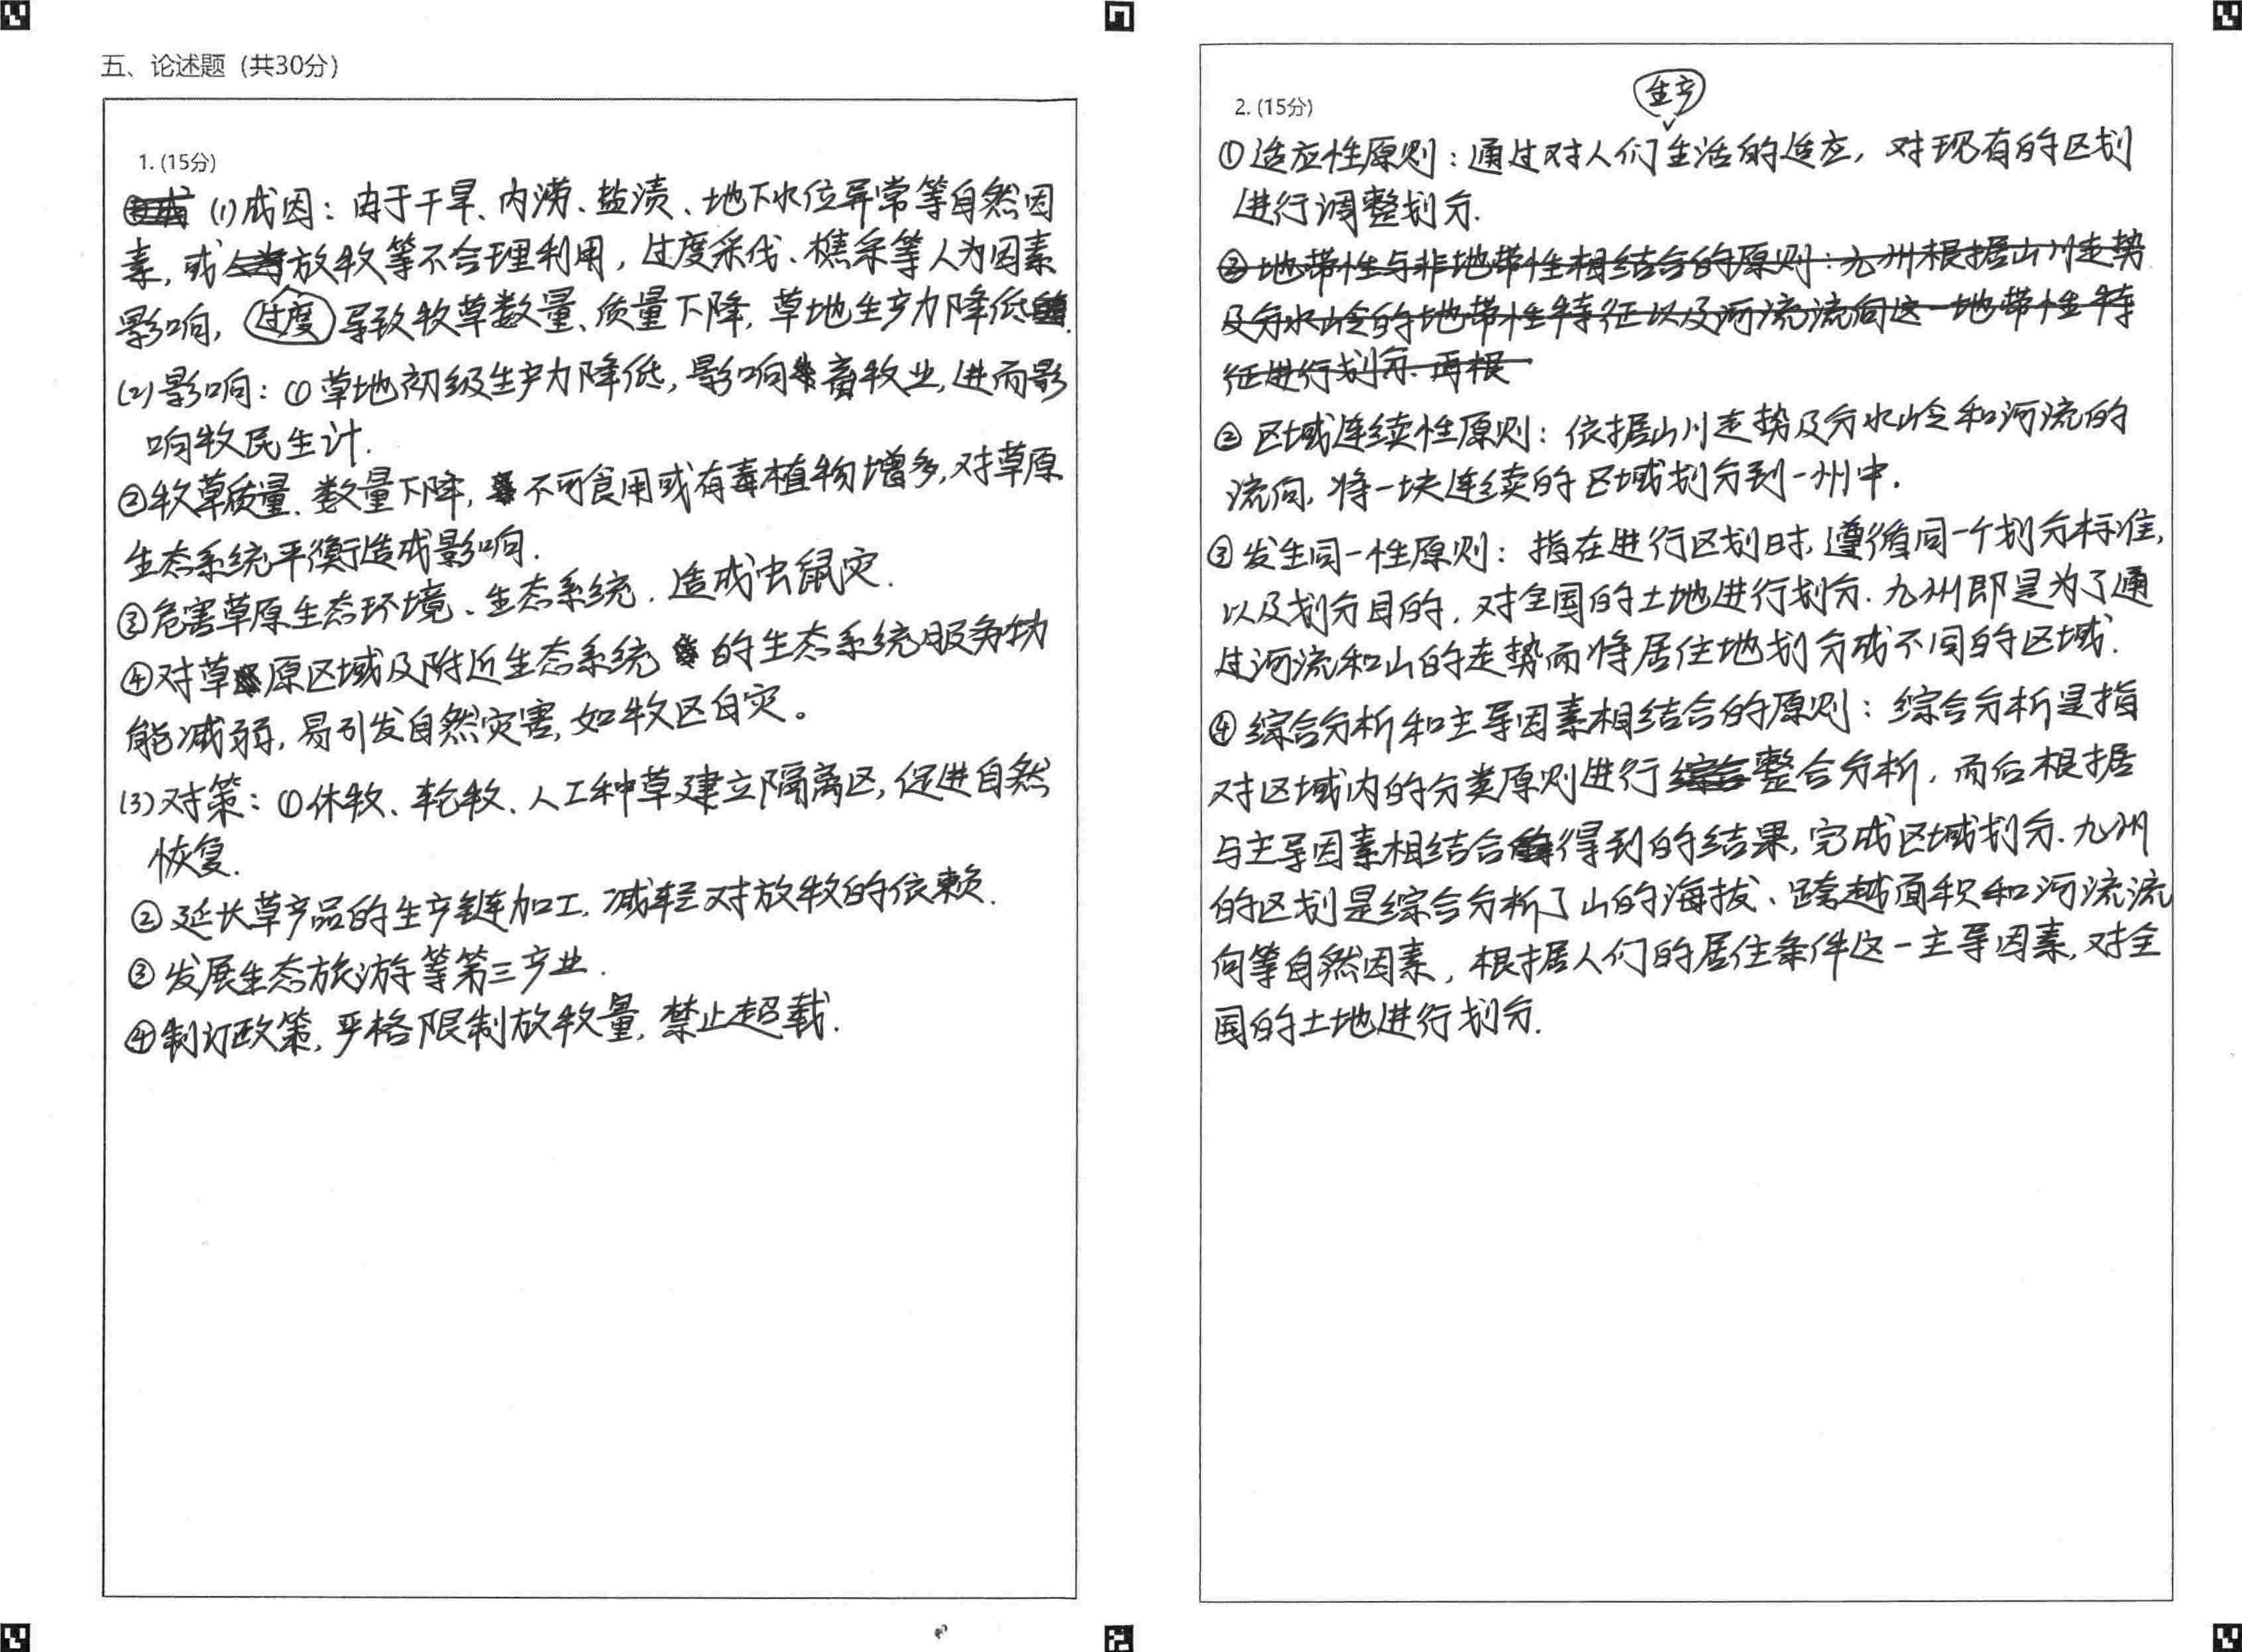 五、论述题 (共30分)
1. (15分)
(1)成因：由于干旱、内涝、盐渍、地下水位异常等自然因
素，或放牧等不合理利用，过度采伐、樵采等人为因素
影响，过度导致牧草数量、质量下降，草地生产力降低.
(2)影响：①草地初级生产力降低，影响畜牧业，进而影
响牧民生计.
②牧草质量、数量下降，不可食用或有毒植物增多，对草原
生态系统平衡造成影响.
③危害草原生态环境、生态系统，造成虫鼠灾.
④对草原区域及附近生态系统的生态系统服务功
能减弱，易引发自然灾害，如牧区白灾。
(3)对策：①休牧、轮牧、人工种草建立隔离区，促进自然
恢复.
②延长草产品的生产链加工，减轻对放牧的依赖.
③发展生态旅游等第三产业.
④制订政策，严格限制放牧量，禁止超载.
2. (15分)
生产
①适应性原则：通过对人们生活的适应，对现有的区划
进行调整划分.
②地带性与非地带性相结合的原则：九州根据山川走势
及分水岭的地带性特征以及河流流向这一地带性特
征进行划分.再根
②区域连续性原则：依据山川走势及分水岭和河流的
流向，将一块连续的区域划分到一州中.
③发生同一性原则：指在进行区划时，遵循同一个划分标准，
以及划分目的，对全国的土地进行划分.九州即是为了通
过河流和山的走势而将居住地划分成不同的区域.
④综合分析和主导因素相结合的原则：综合分析是指
对区域内的分类原则进行整合分析，而后根据
与主导因素相结合得到的结果，完成区域划分.九州
的区划是综合分析了山的海拔、跨越面积和河流流
向等自然因素，根据人们的居住条件这一主导因素，对全
国的土地进行划分.